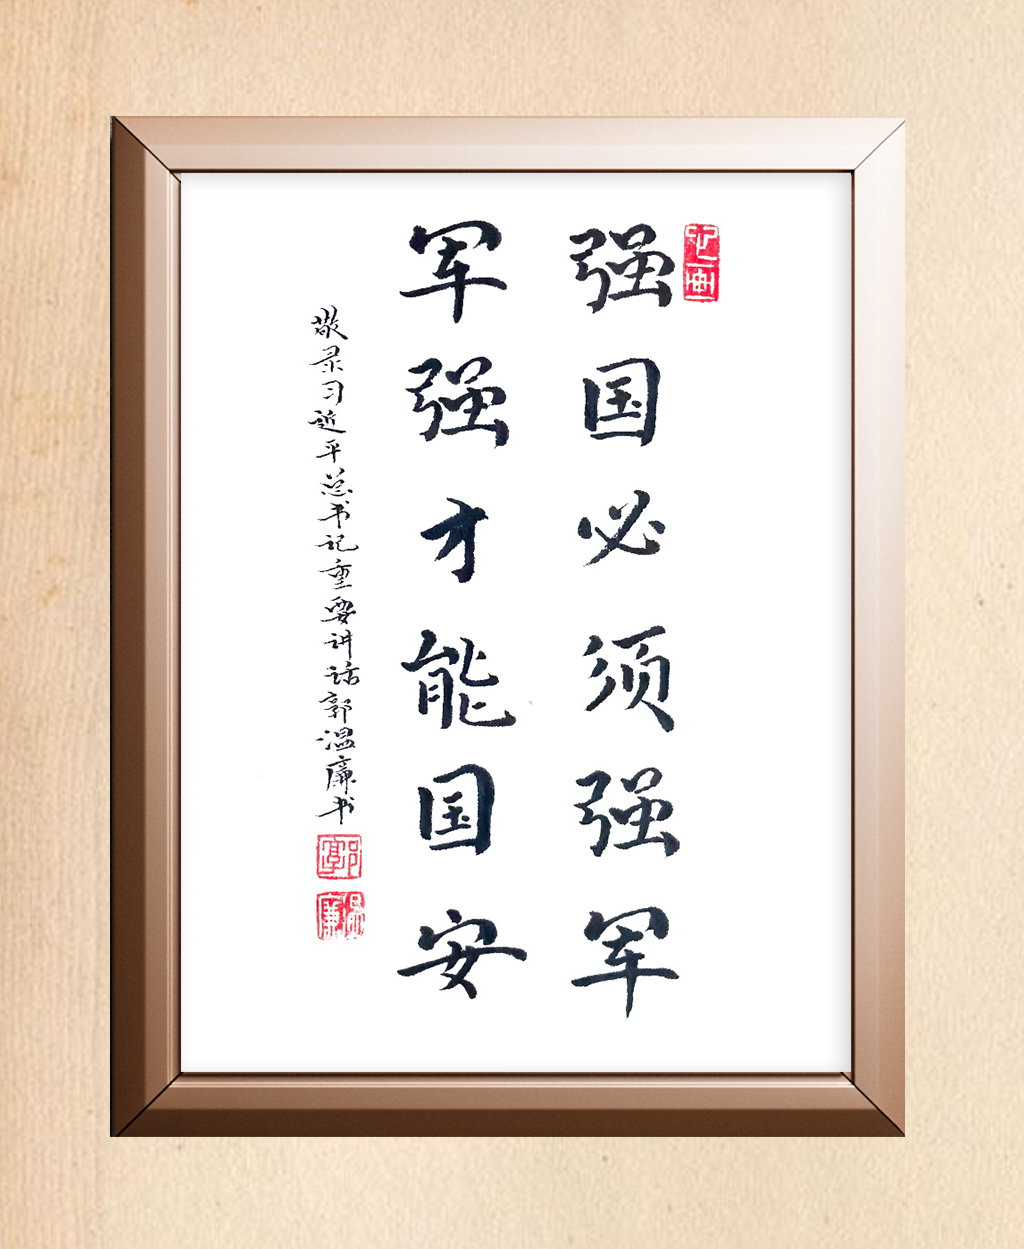 强国必须强军
军强才能国安
敬录习近平总书记重要讲话郭温廉书